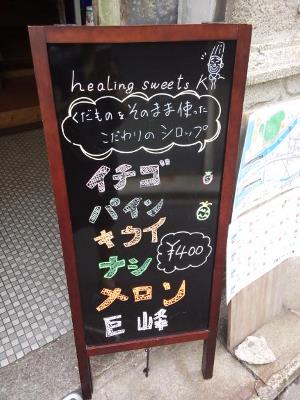 healing sweets K
くだものをそのまま使った
こだわりのシロップ
イチゴ
パイン
キウイ
ナシ
¥400
メロン
巨峰